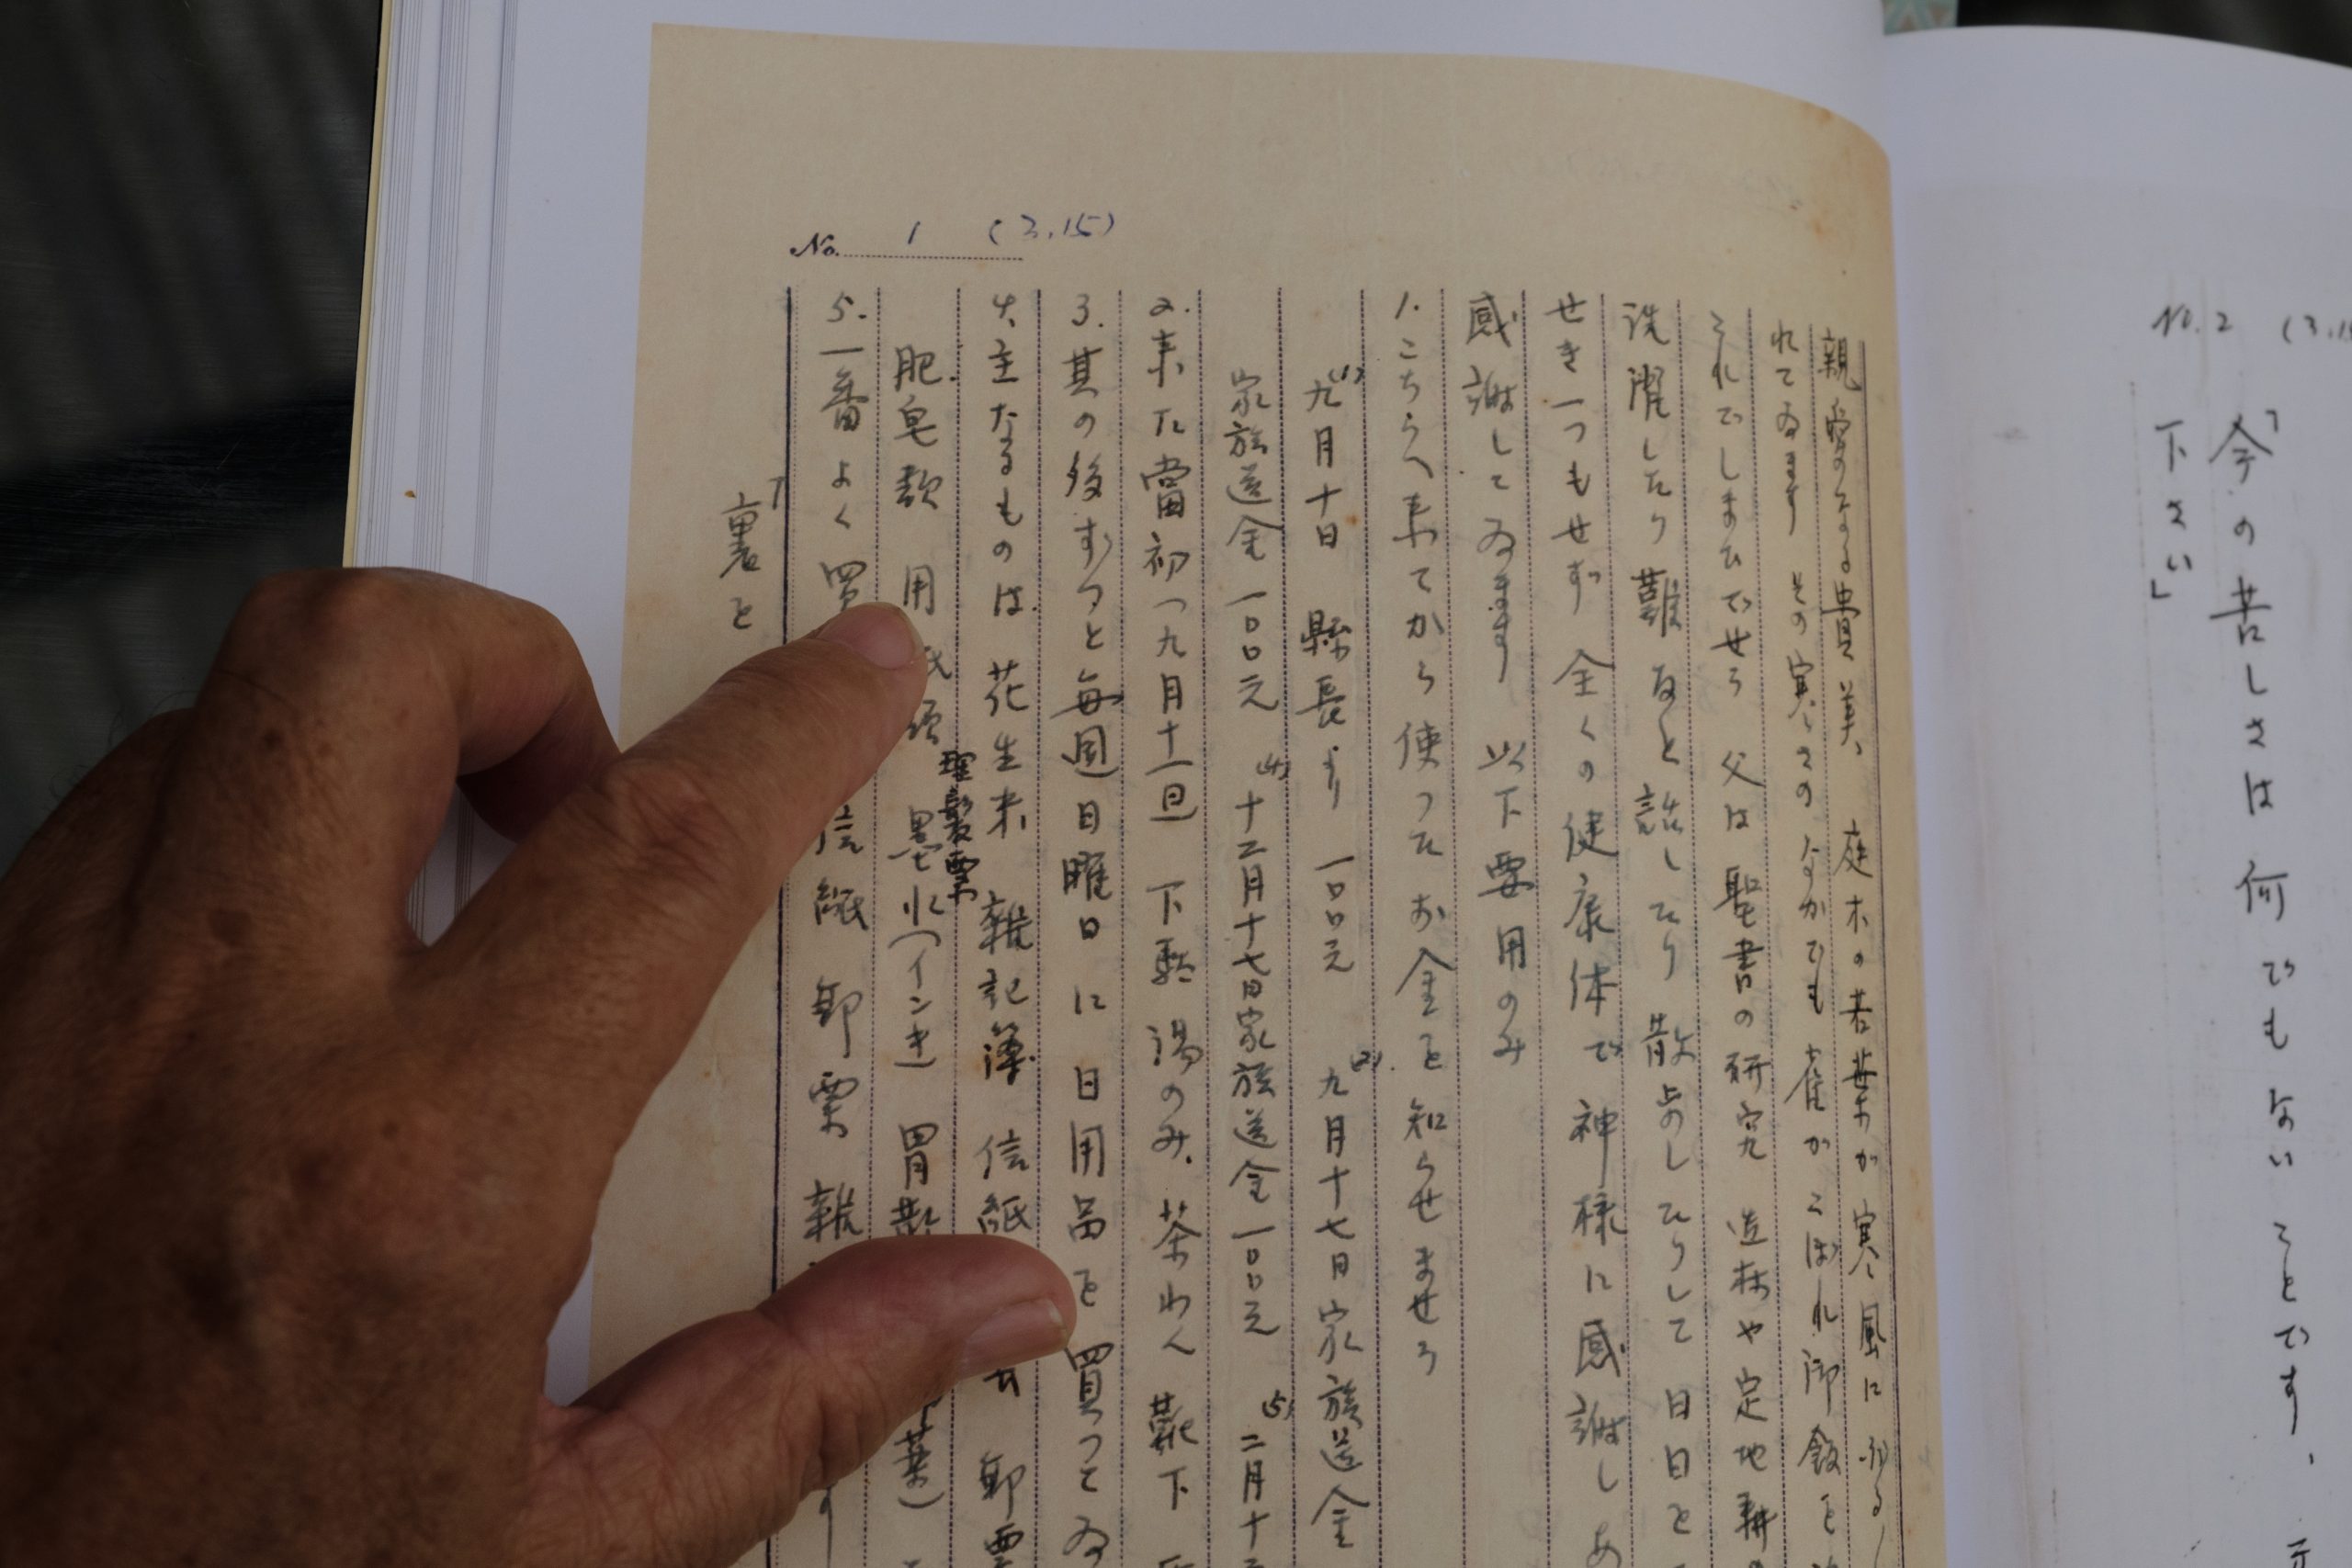 No.2 (3.1
「今の苦しさは何でもないことです、
下さい」
No. 1 (3.15)
親愛なる貴美、庭木の若葉が寒風に
れてゐます その寒さのなかでも雀がこぼれ御飯を
それでしまひでせう 父は聖書の研究 造林や定地耕
洗濯したり 難なと話したり散歩したりして 日日を
せき一つもせず 全くの健康体で 神様に感謝しあ
感謝してゐます 以下要用のみ
1.こちらへ来てから使つたお金を知らせませう
(1)九月十日 縣長より 一〇〇元 (2)九月十七日家族送金
家族送金一〇〇元 (4)十二月十七日家族送金一〇〇元 (5)二月十
2.来た當初(九月十一日) 下駄 湯のみ、茶わん 靴下
3.其の後ずつと毎週日曜日に日用品を買つてゐ
4.主なるものは 花生米 雑記簿 信紙 郵票
理髪票
肥皂類 用紙類 墨水(インキ) 胃散
5.一番よく買 信紙 郵票 雑
「裏を